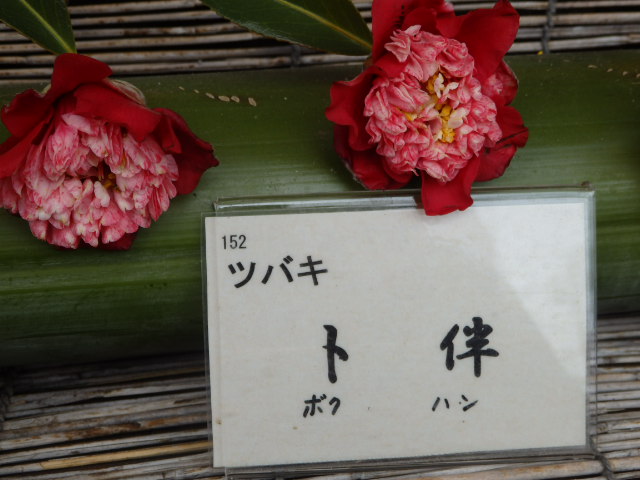 152
ツバキ
卜伴
ボクハン